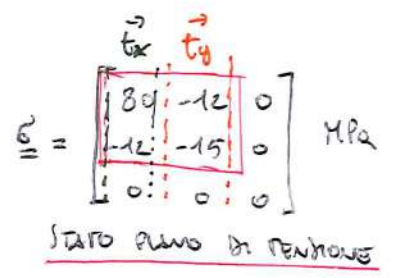 t⃗x t⃗y
80 -12 0
σ = -12 -15 0 MPa
0 0 0
STATO PIANO DI TENSIONE